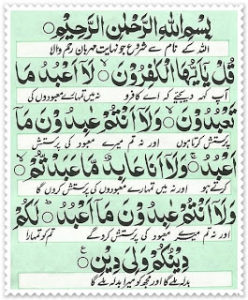 بِسْمِ اللهِ الرَّحْمٰنِ الرَّحِیْمِ
اللہ کے نام سے شروع جو نہایت مہربان رحم والا
قُلْ یٰۤاَیُّهَا الْكٰفِرُوْنَ لَاۤ اَعْبُدُ مَا
آپ کہہ دیجئیے کہ اے کافرو نہ میں تمہارے معبودوں کی
تَعْبُدُوْنَ وَلَاۤ اَنْتُمْ عٰبِدُوْنَ مَاۤ
پرستش کرتا ہوں اور نہ تم میرے معبود کی پرستش
اَعْبُدُ وَلَاۤ اَنَا عَابِدٌ مَّا عَبَدْتُّمْ
کرتے ہو اور نہ میں تمہارے معبودوں کی پرستش کروں گا
وَلَاۤ اَنْتُمْ عٰبِدُوْنَ مَاۤ اَعْبُدُ لَكُمْ
اور نہ تم میرے معبود کی پرستش کرو گے تم کو تمہارا
دِیْنُكُمْ وَلِیَ دِیْنِ
بدلہ ملے گا اور مجھ کو میرا بدلہ ملے گا